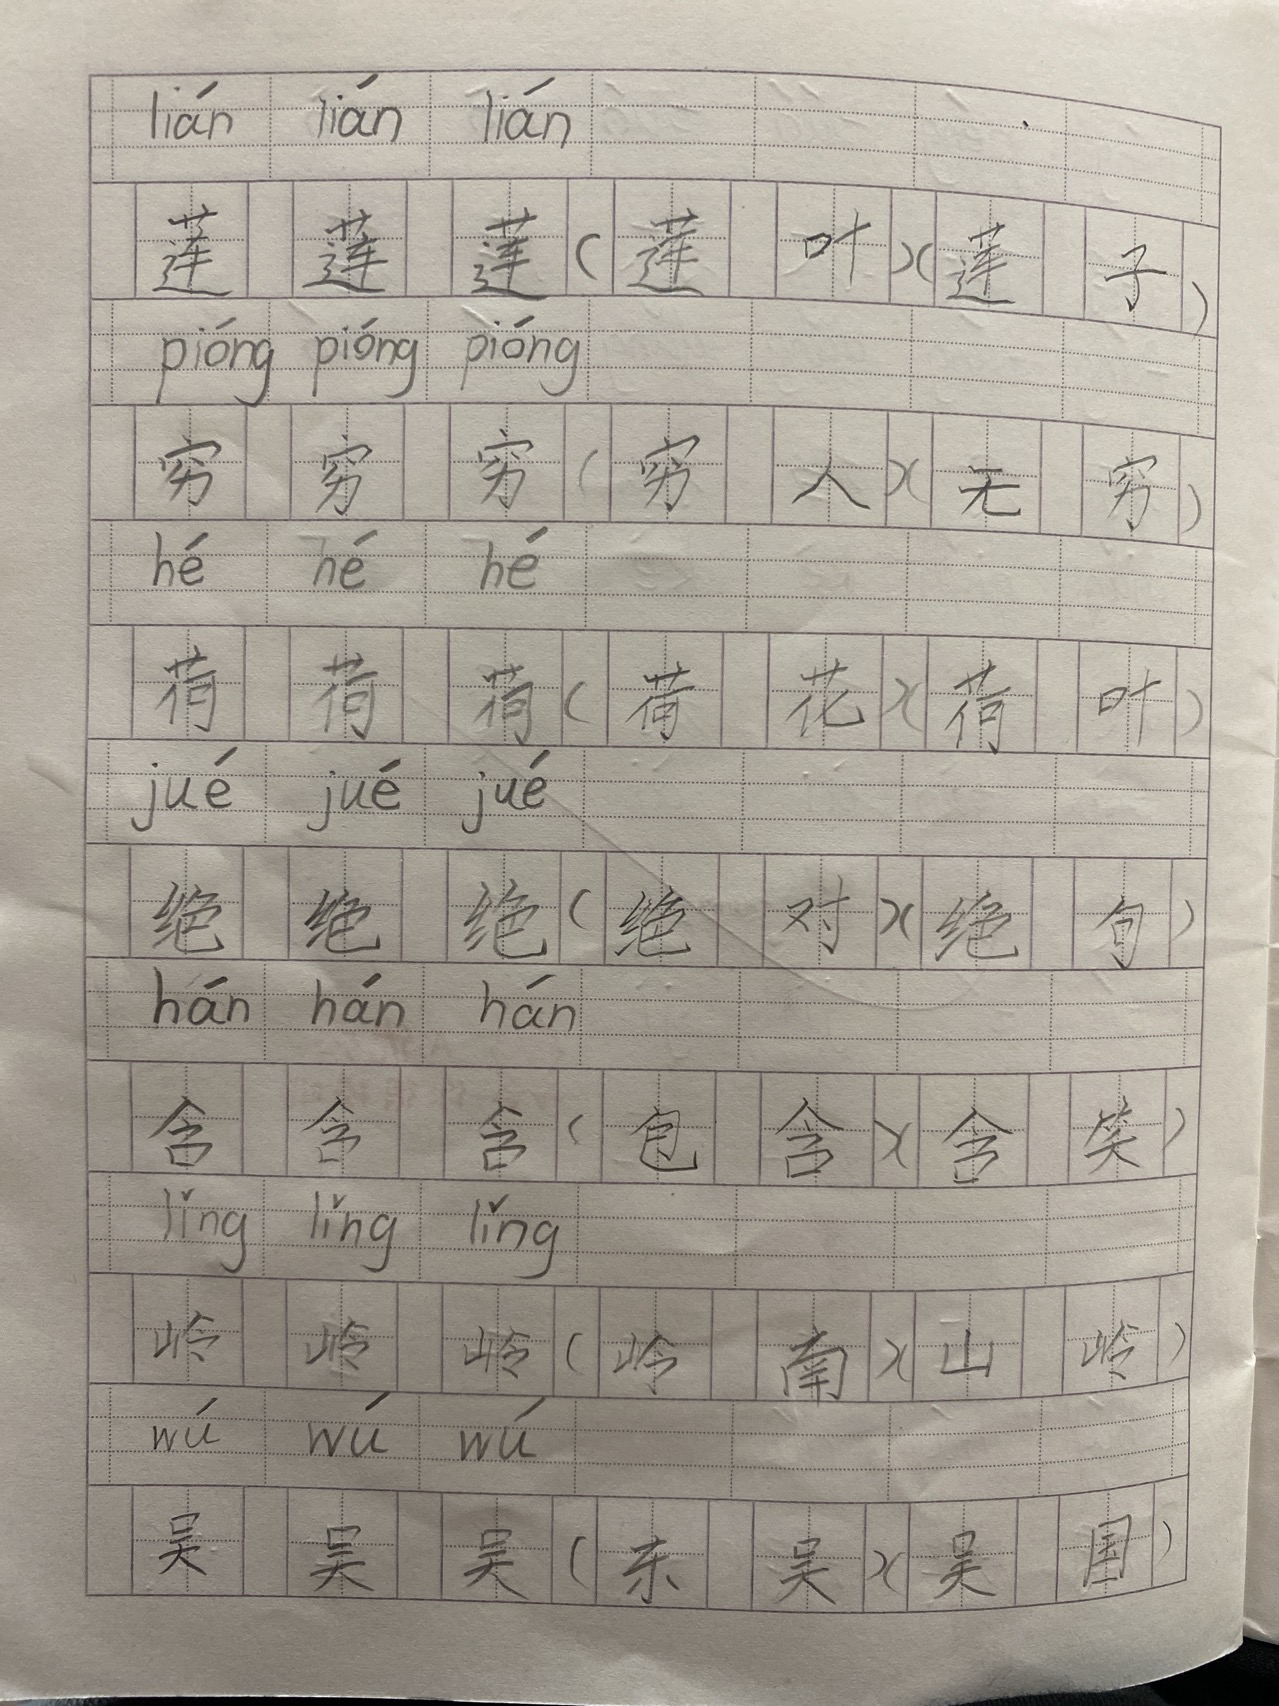 lián lián lián
莲 莲 莲 ( 莲 叶 )( 莲 子 )
pióng pióng pióng
穷 穷 穷 ( 穷 人 )( 无 穷 )
hé hé hé
荷 荷 荷 ( 荷 花 )( 荷 叶 )
jué jué jué
绝 绝 绝 ( 绝 对 )( 绝 句 )
hán hán hán
含 含 含 ( 包 含 )( 含 笑 )
lǐng lǐng lǐng
岭 岭 岭 ( 岭 南 )( 山 岭 )
wú wú wú
吴 吴 吴 ( 东 吴 )( 吴 国 )